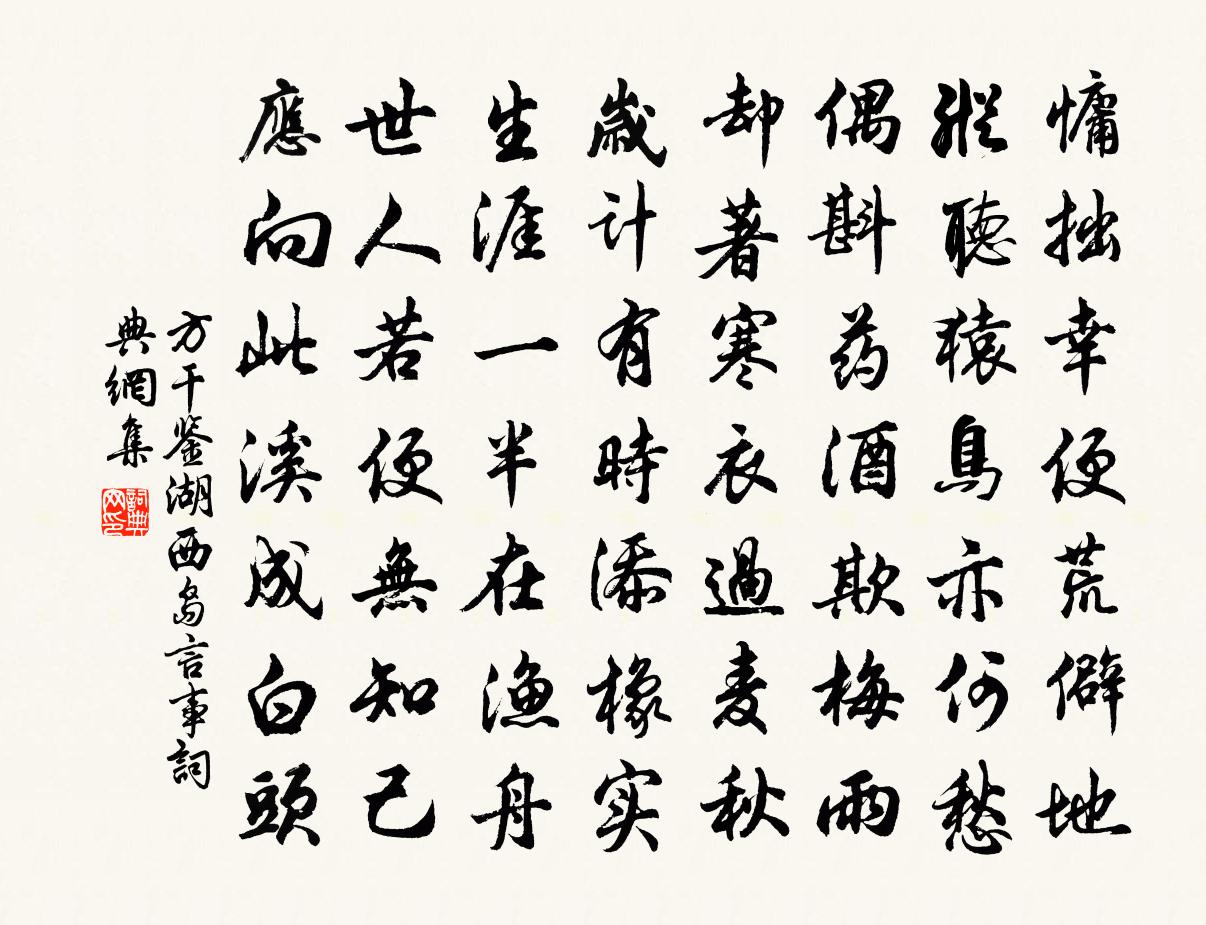 慵拙幸便荒僻地
縱聽猿鳥亦何愁
偶斟药酒欺梅雨
却著寒衣過麦秋
歲计有時添橡实
生涯一半在漁舟
世人若便無知己
應向此溪成白頭
方干鉴湖西島言事詞
典網集
詞典网印